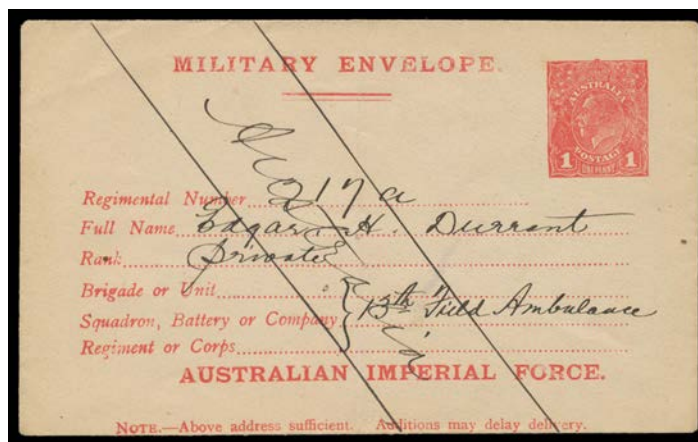 MILITARY ENVELOPE.
AUSTRALIA
POSTAGE
1 ONE PENNY 1
Regimental Number 217a
Full Name Edgar H. Durrant
Rank Private
Brigade or Unit
Squadron, Battery or Company 13th Field Ambulance
Regiment or Corps
AUSTRALIAN IMPERIAL FORCE.
NOTE.—Above address sufficient. Additions may delay delivery.
Australia